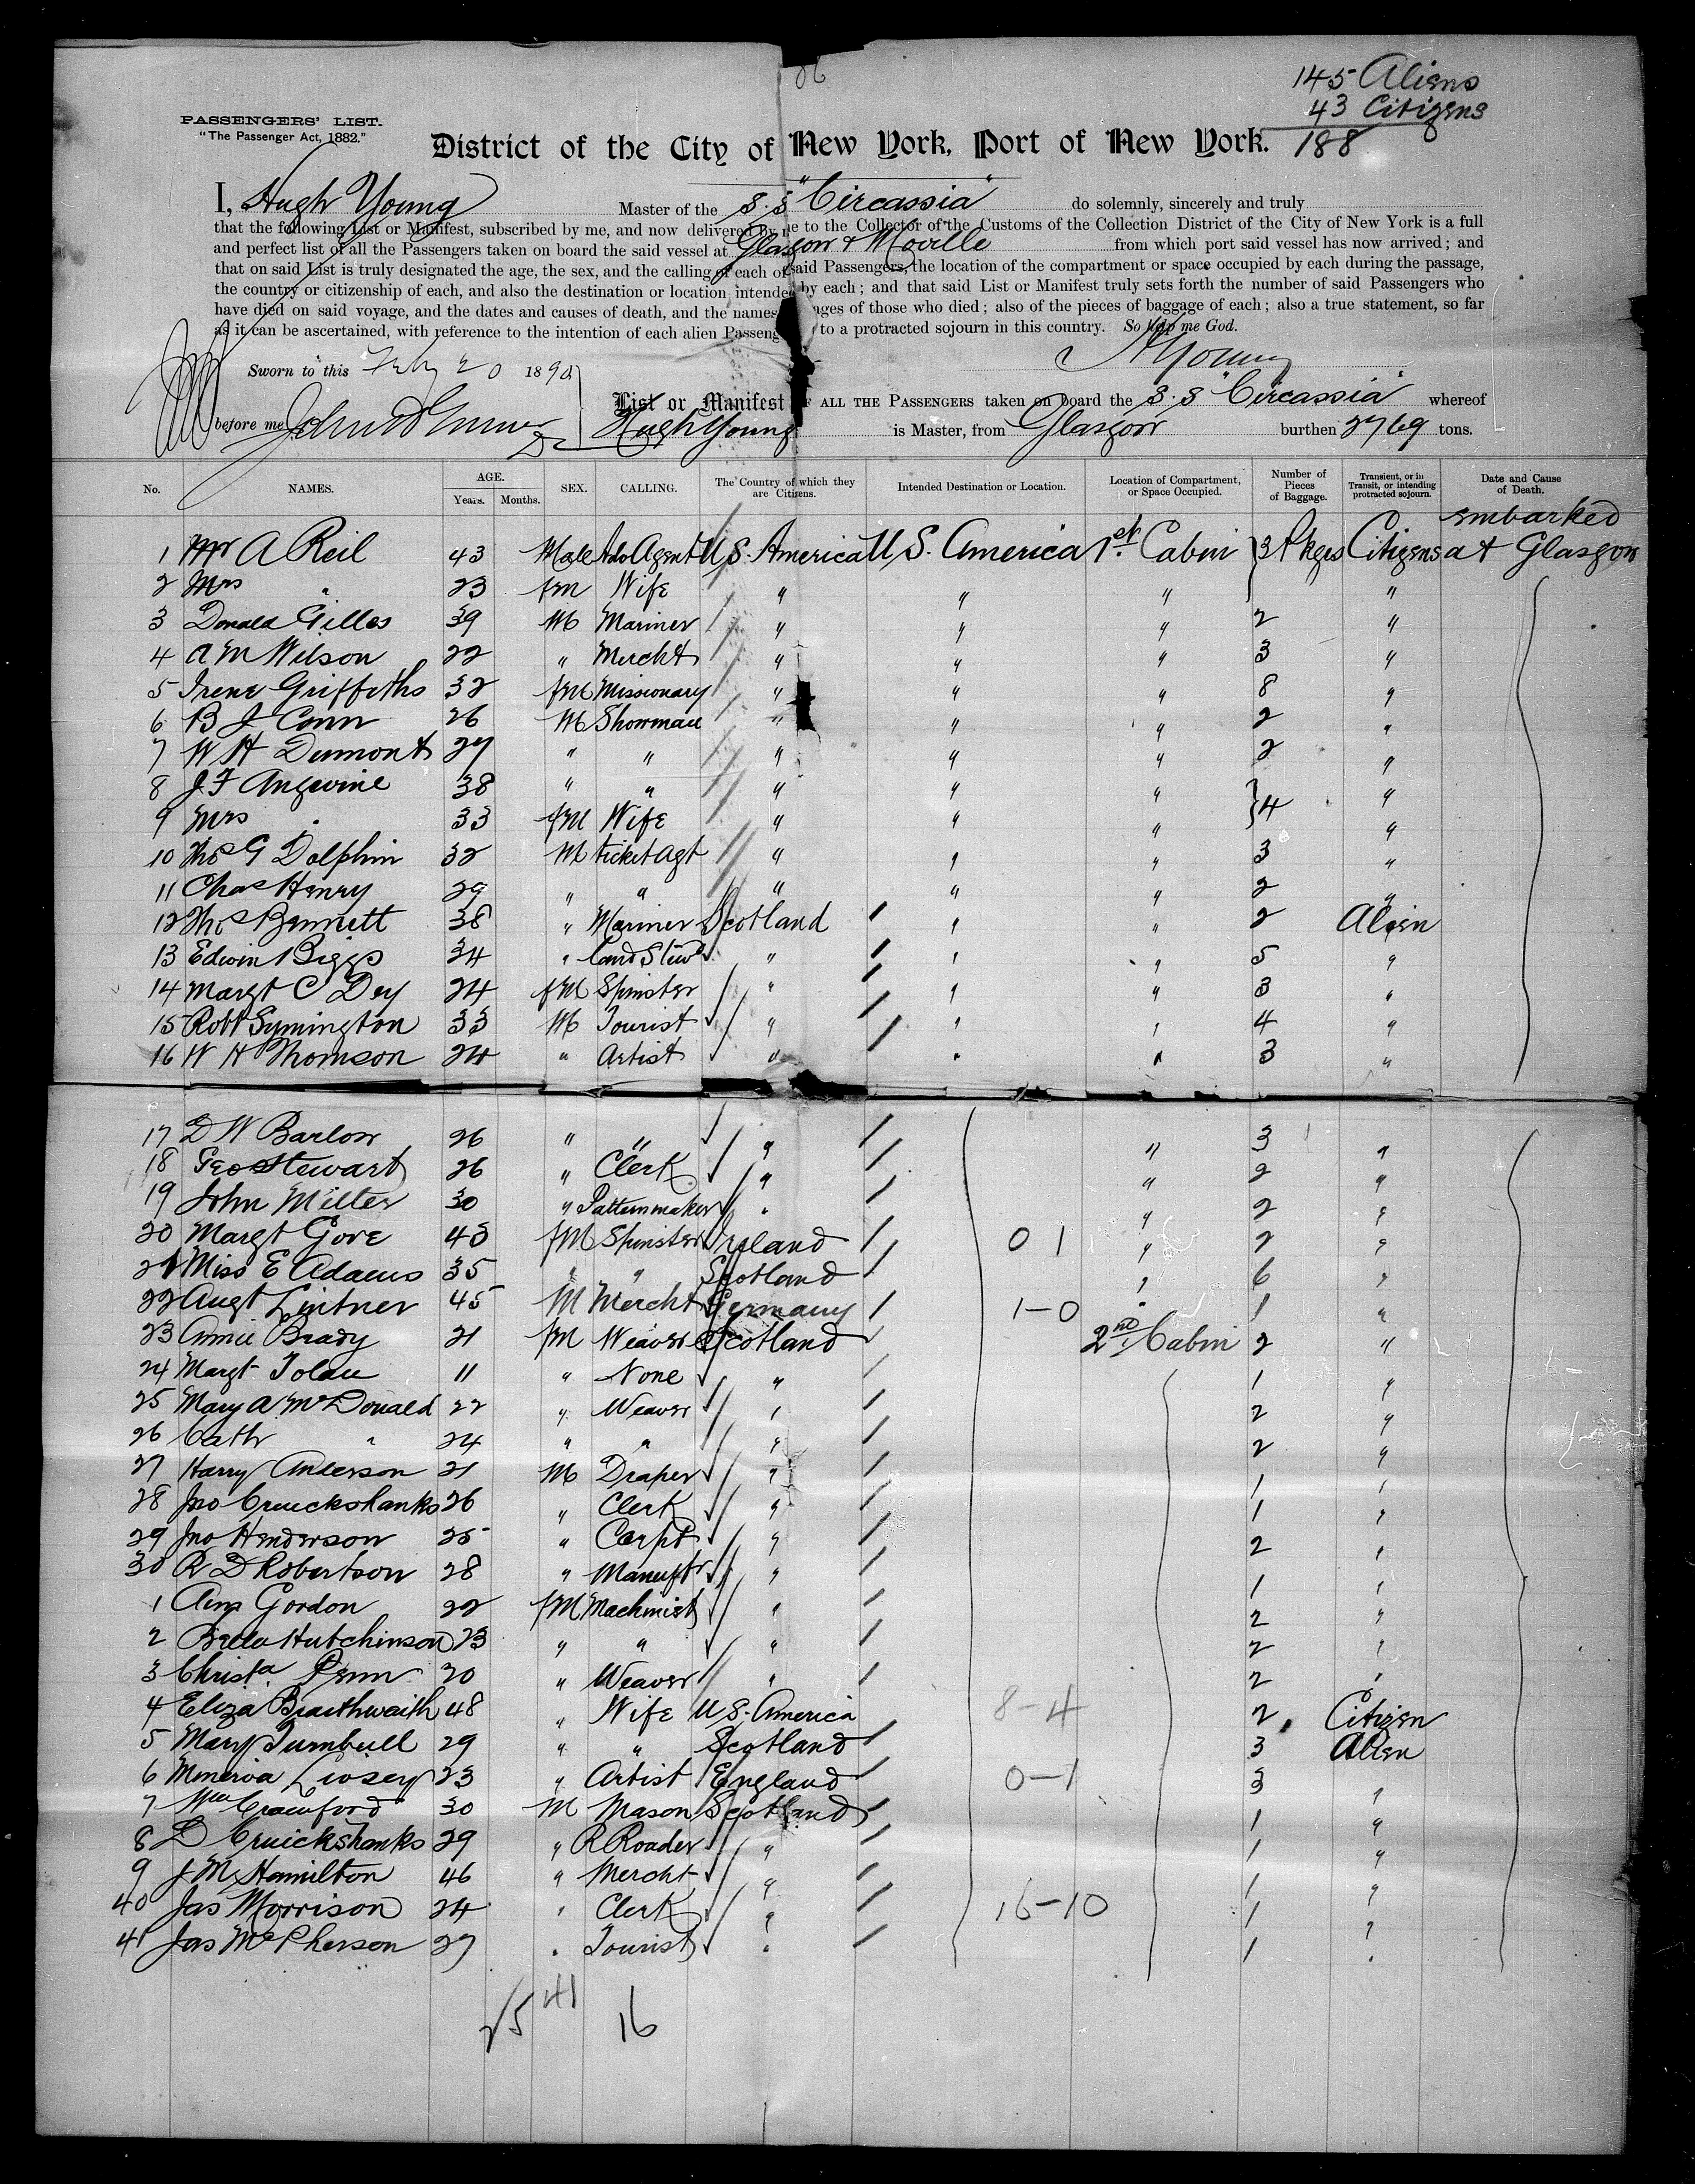 86
145 Aliens
43 Citizens
188
PASSENGERS' LIST.
"The Passenger Act, 1882."
District of the City of New York, Port of New York.
I, Hugh Young Master of the S.S "Circassia" do solemnly, sincerely and truly
that the following List or Manifest, subscribed by me, and now delivered by me to the Collector of the Customs of the Collection District of the City of New York is a full
and perfect list of all the Passengers taken on board the said vessel at Glasgow & Moville from which port said vessel has now arrived; and
that on said List is truly designated the age, the sex, and the calling of each of said Passengers, the location of the compartment or space occupied by each during the passage,
the country or citizenship of each, and also the destination or location intended by each; and that said List or Manifest truly sets forth the number of said Passengers who
have died on said voyage, and the dates and causes of death, and the names ages of those who died; also of the pieces of baggage of each; also a true statement, so far
as it can be ascertained, with reference to the intention of each alien Passenger to a protracted sojourn in this country. So help me God.
H Young
Sworn to this Feby 20 1890
before me
List or Manifest OF ALL THE PASSENGERS taken on board the S.S "Circassia" whereof
Hugh Young is Master, from Glasgow burthen 2769 tons.
No. NAMES. AGE. Years. Months. SEX. CALLING. The Country of which they are Citizens. Intended Destination or Location. Location of Compartment, or Space Occupied. Number of Pieces of Baggage. Transient, or in Transit, or intending protracted sojourn. Date and Cause of Death.
embarked
1 Mr A Reil 43 Male Adv Agent U S. America U S. America 1st Cabin 3 Pkges Citizens at Glasgow
2 Mrs " 23 fm Wife " " " "
3 Donald Gilles 39 M Mariner " " " 2 "
4 A M Wilson 22 " Mercht " " " 3 "
5 Irene Griffeths 32 fM Missionary " " " 8 "
6 B J Conn 26 M Showman " " " 2 "
7 W H Dumont 27 " " " " " 2 "
8 J F Angevine 38 " " " " " } 4 "
9 Mrs " 33 fM Wife " " " "
10 Thos G Dolphin 32 M ticket Agt " " " 3 "
11 Chas Henry 29 " " " " " 2 "
12 Thos Bennett 38 " Mariner Scotland " " 2 Alien
13 Edwin Biggs 34 " Land Stewd " " " 5 "
14 Margt C Dey 24 fM Spinster " " " 3 "
15 Robt Symington 33 M Tourist " " " 4 "
16 W H Thomson 24 " Artist " " " 3 "
17 D W Barlow 26 " " " " 3 "
18 Geo Stewart 26 " Clerk " " 2 "
19 John Miller 30 " Patternmaker " " 2 "
20 Margt Gore 43 fM Spinster Ireland 0 1 " 2 "
21 Miss E Adams 35 " " Scotland " 6 "
22 Augt Lintner 45 M Mercht Germany 1-0 " 1 "
23 Annie Brady 21 fM Weaver Scotland 2nd Cabin 2 "
24 Margt Tolau 11 " None " 1 "
25 Mary A McDonald 22 " Weaver " 2 "
26 Cath " 24 " " " 2 "
27 Harry Anderson 21 M Draper " 1 "
28 Jno Cruickshanks 26 " Clerk " 1 "
29 Jno Henderson 25 " Carpt " 2 "
30 R D Robertson 28 " Manuftr " 1 "
1 Gordon 22 fM Machinist " 2 "
2 Bella Hutchinson 23 " " " 2 "
3 Christa Penn 20 " Weaver " 2 "
4 Eliza Braithwaith 48 " Wife U S. America 8-4 2 Citizen
5 Mary Turnbull 29 " " Scotland 3 Alien
6 Minerva Livsey 23 " Artist England 0-1 3 "
7 Wm Crawford 30 M Mason Scotland 1 "
8 D Cruickshanks 29 " R Roader " 1 "
9 J M Hamilton 46 " Mercht " 1 "
40 Jas Morrison 24 " Clerk " 16-10 1 "
41 Jas McPherson 27 " Tourist " 1 "
25 41 16